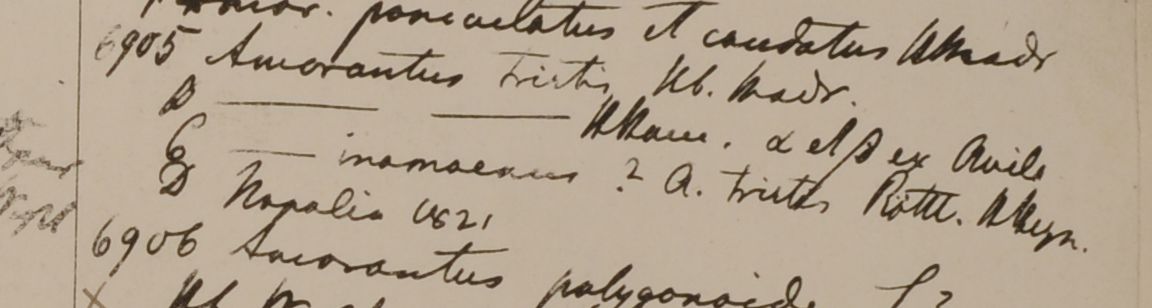 paniculatus et caudatus HMadr
6905 Amarantus tristis Hb. Madr.
B ——— ——— HHam. α et β ex Avila
C —— inamoenus ? A. tristis Rottl. HHeyn.
D Napalia 1821
6906 Amarantus polygonoides L?
Hb.